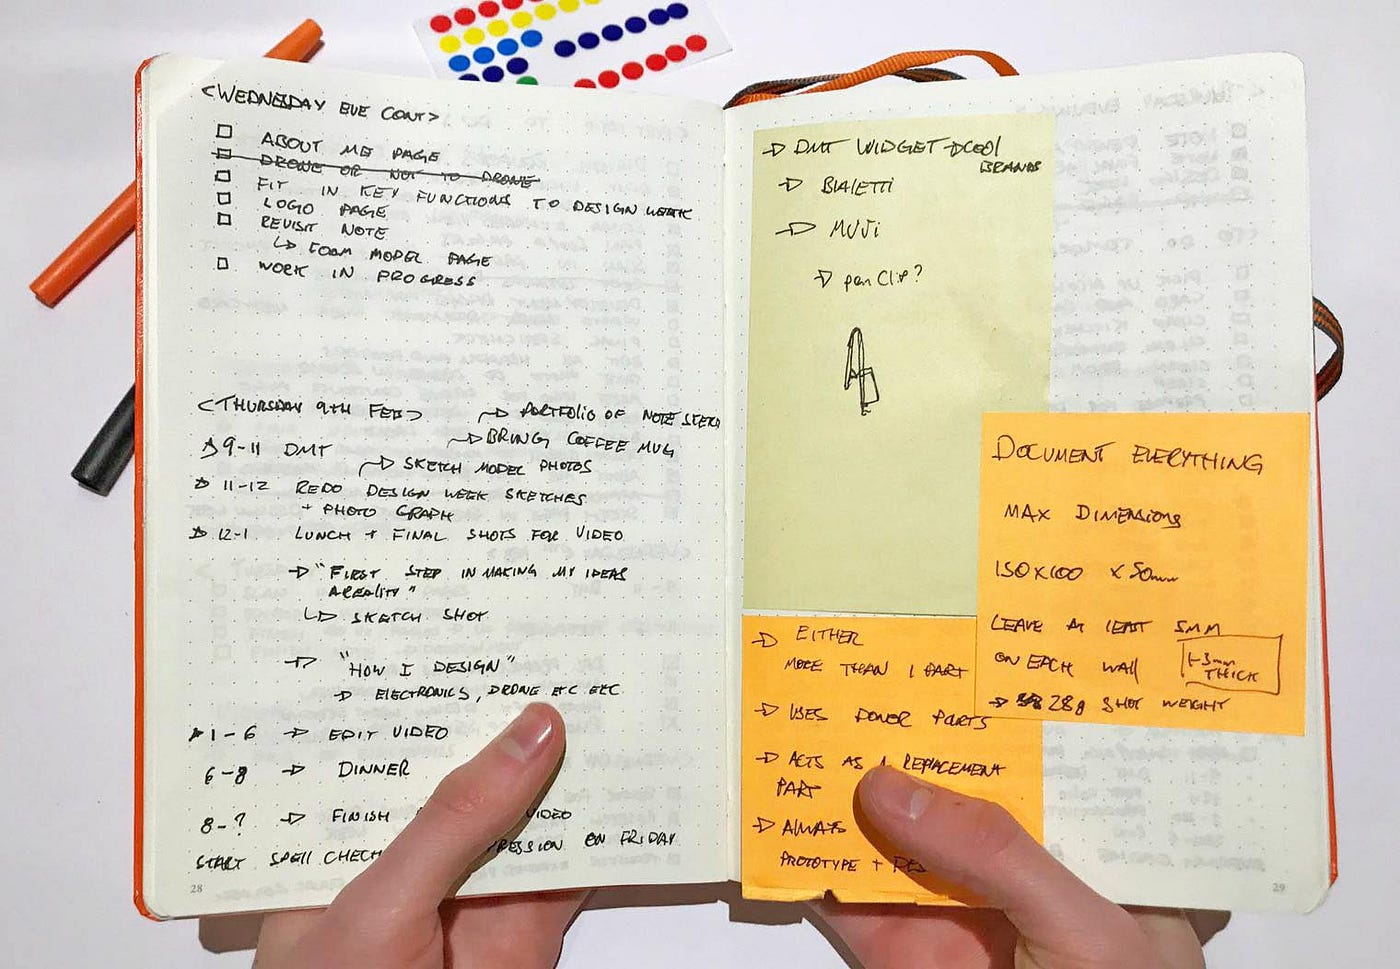 <WEDNESDAY EVE CONT>
ABOUT ME PAGE
DRONE OR NOT TO DRONE
FIT IN KEY FUNCTIONS TO DESIGN WEEK
LOGO PAGE
REVISIT NOTE
↳ FOAM MODEL PAGE
WORK IN PROGRESS
<THURSDAY 9TH FEB>
→ PORTFOLIO OF NOTE SKETCH
→ BRING COFFEE MUG
9-11 DMT
→ SKETCH MODEL PHOTOS
11-12 REDO DESIGN WEEK SKETCHES
+ PHOTO GRAPH
12-1 LUNCH + FINAL SHOTS FOR VIDEO
→ "FIRST STEP IN MAKING MY IDEAS
A REALITY"
↳ SKETCH SHOT
→ "HOW I DESIGN"
→ ELECTRONICS, DRONE ETC ETC
1-6 → EDIT VIDEO
6-8 → DINNER
8-? → FINISH VIDEO
START SPELL CHECH ON FRIDAY
28
→ DMT WIDGET → COOL
BRANDS
→ BIALETTI
→ MUJI
→ pen Clip?
DOCUMENT EVERYTHING
MAX DIMENSIONS
150 x 100 x 50mm
LEAVE AT LEAST 5MM
ON EACH WALL
1-3mm
THICK
→ 28g SHOT WEIGHT
→ EITHER
MORE THAN 1 PART
→ USES DONOR PARTS
→ ACTS AS A REPLACEMENT
PART
→ ALWAYS
PROTOTYPE +
29